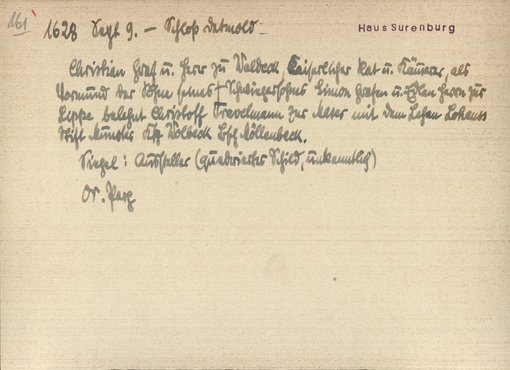 161
1628 Sept. 9. – Schloß Detmold.
Haus Surenburg
Christian Graf u. Herr zu Waldeck, Kaiserlicher Rat u. Kämerer, als
Vormund der Söhne seines † Schwiegersohns Simon Grafen u. Edlen Herrn zur
Lippe, belehnt Christoff Travelmann zur Maser mit dem Lehen
Stift Münster Ksp. Wolbeck Bsch. Möllenbeck.
Siegel: Aussteller (quadrierter Schild, unkenntlich)
Or. Perg